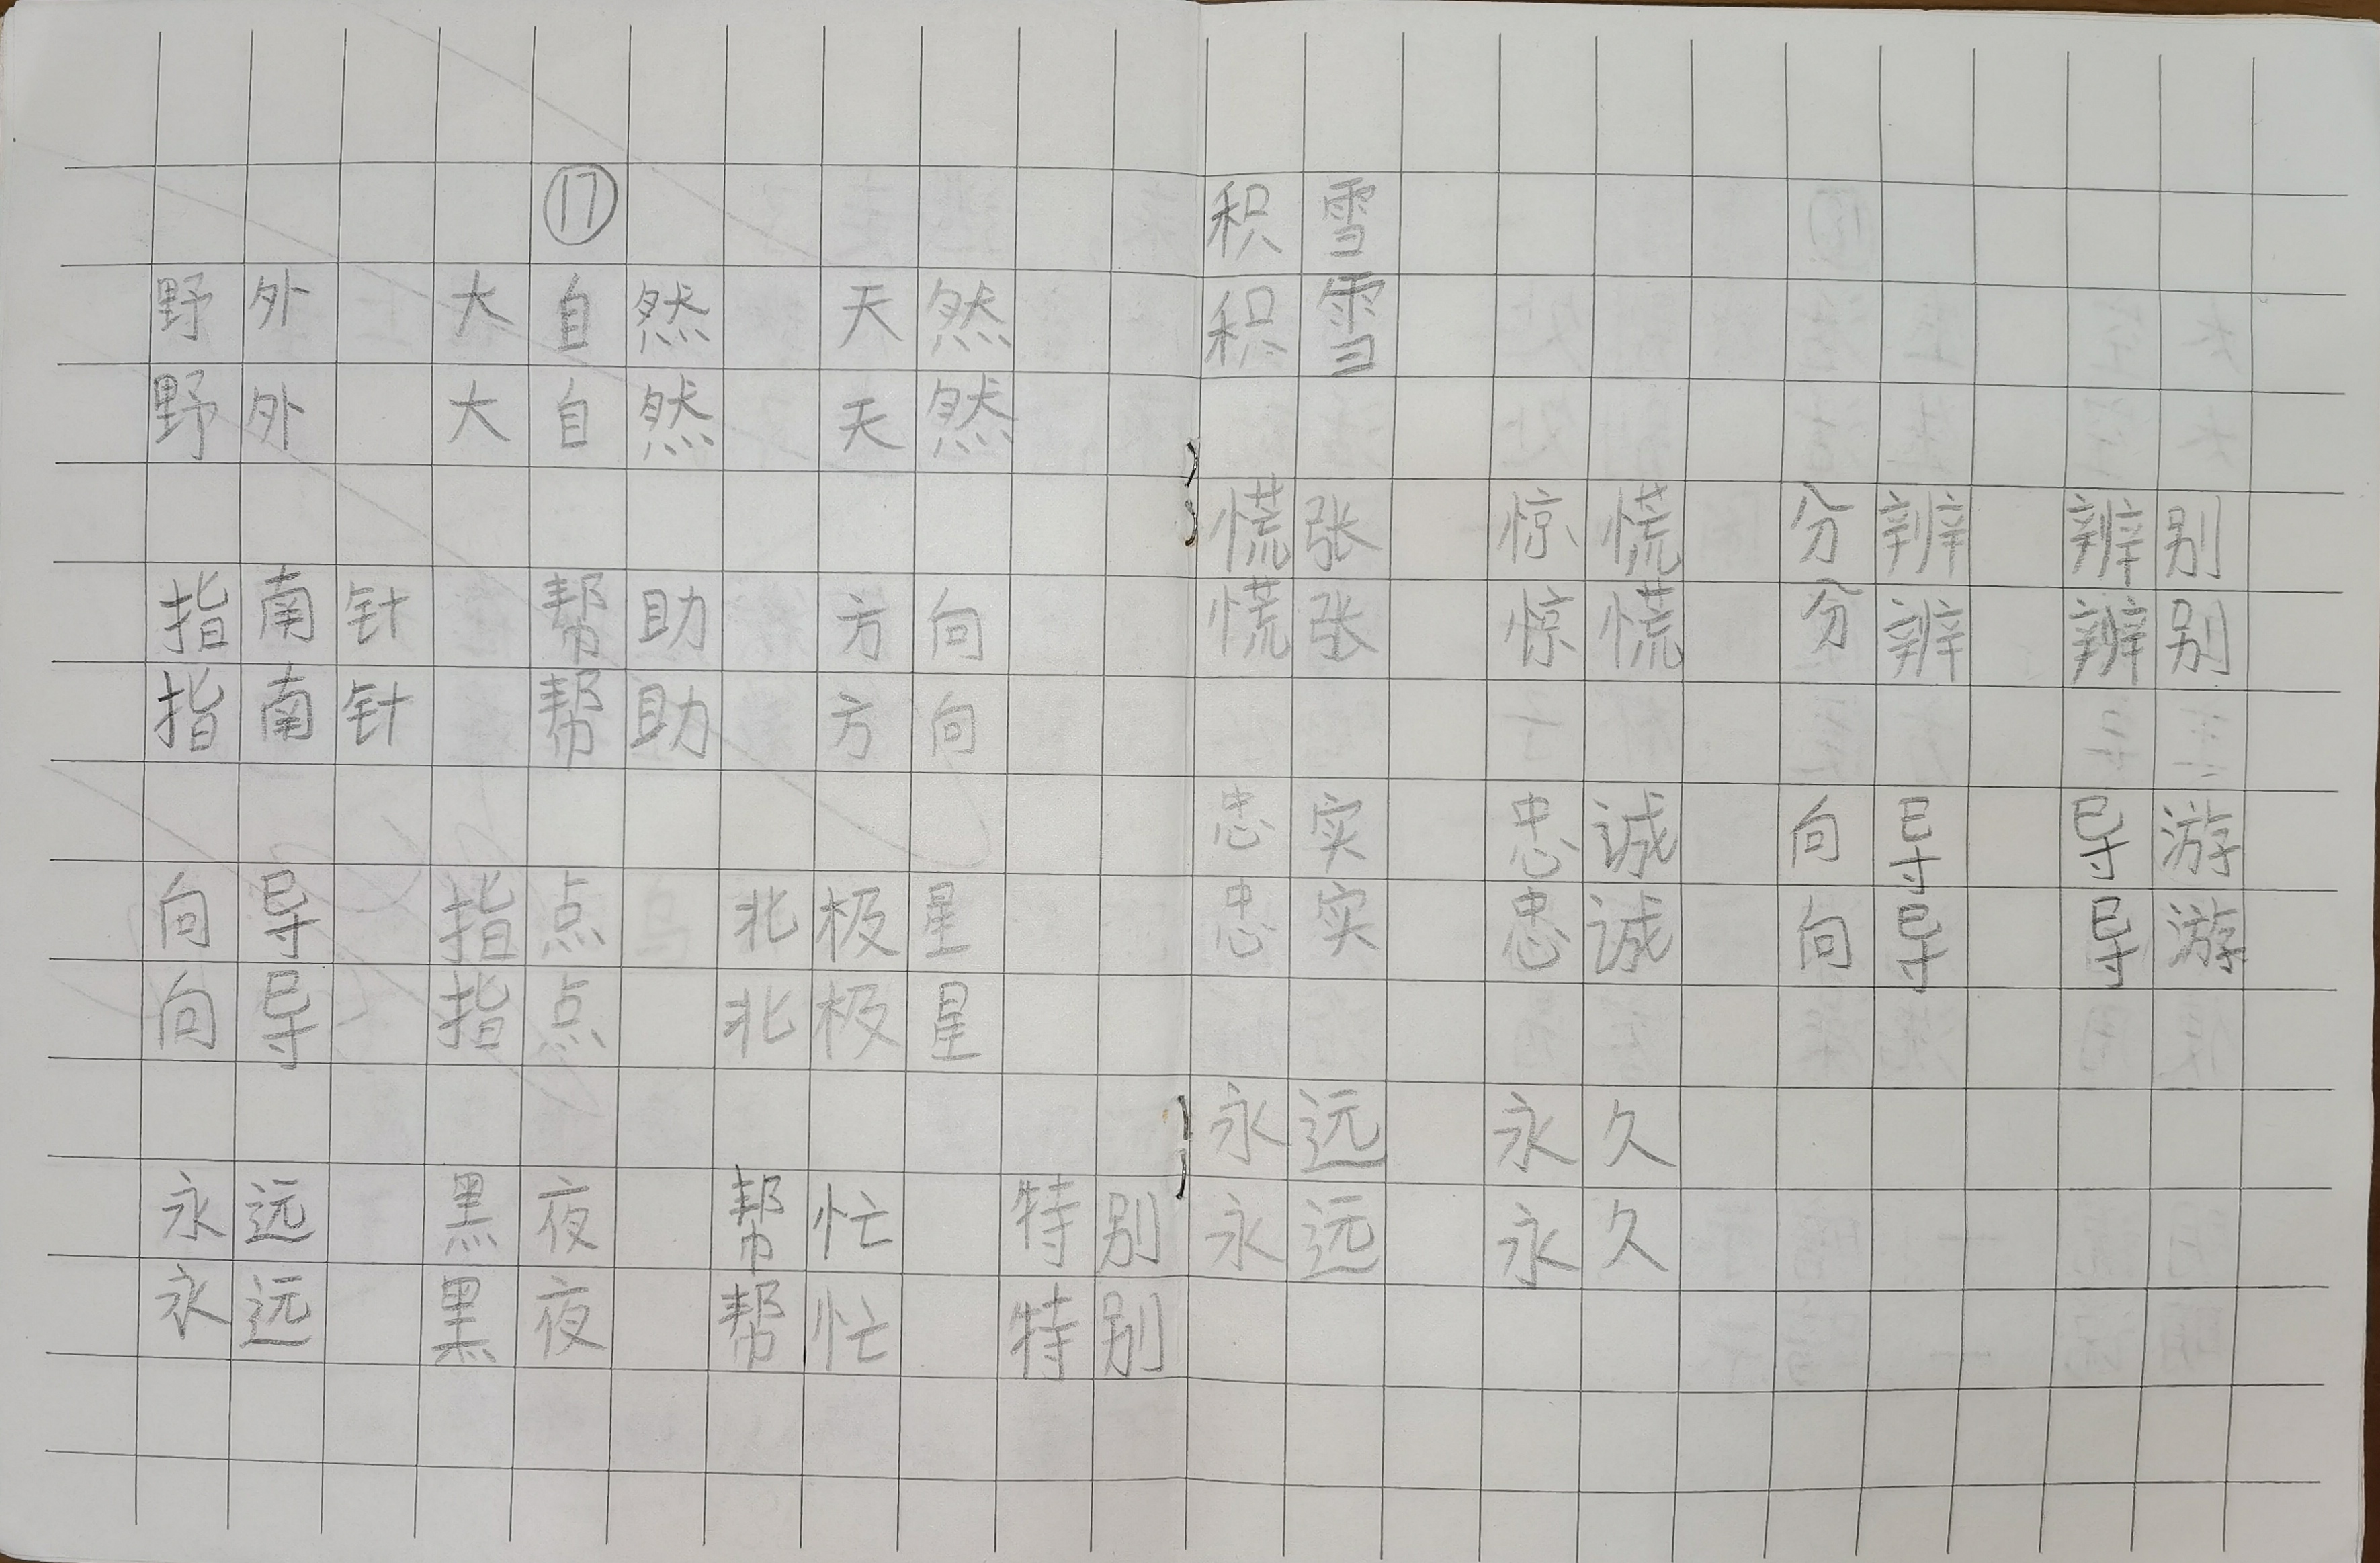 ⑰
野外 大自然 天然
野外 大自然 天然
指南针 帮助 方向
指南针 帮助 方向
向导 指点 北极星
向导 指点 北极星
永远 黑夜 帮忙 特别
永远 黑夜 帮忙 特别
积雪
积雪
慌张 惊慌 分辨 辨别
慌张 惊慌 分辨 辨别
忠实 忠诚 向导 导游
忠实 忠诚 向导 导游
永远 永久
永远 永久